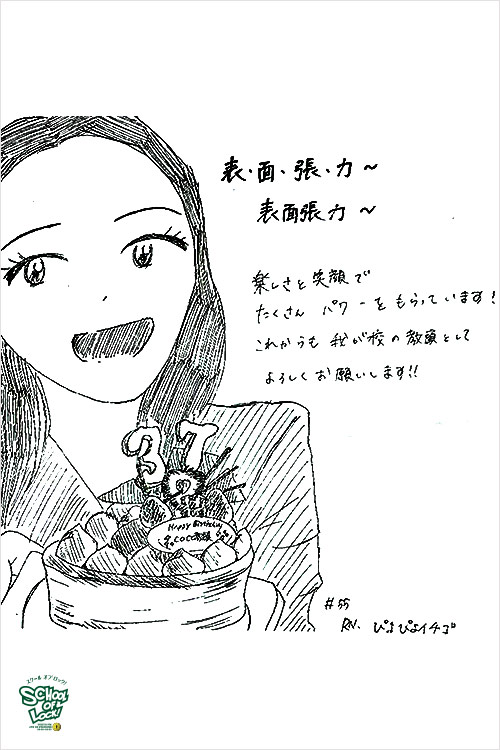 表・面・張・力～
表面張力～
楽しさと笑顔で
たくさん パワーをもらっています!
これからも 我が校の教頭として
よろしくお願いします!!
37
Happy Birthday
COCO教頭
#55
RN. ぴよぴよイチゴ
スクール オブ ロック!
SCHOOL
OF
LOCK!